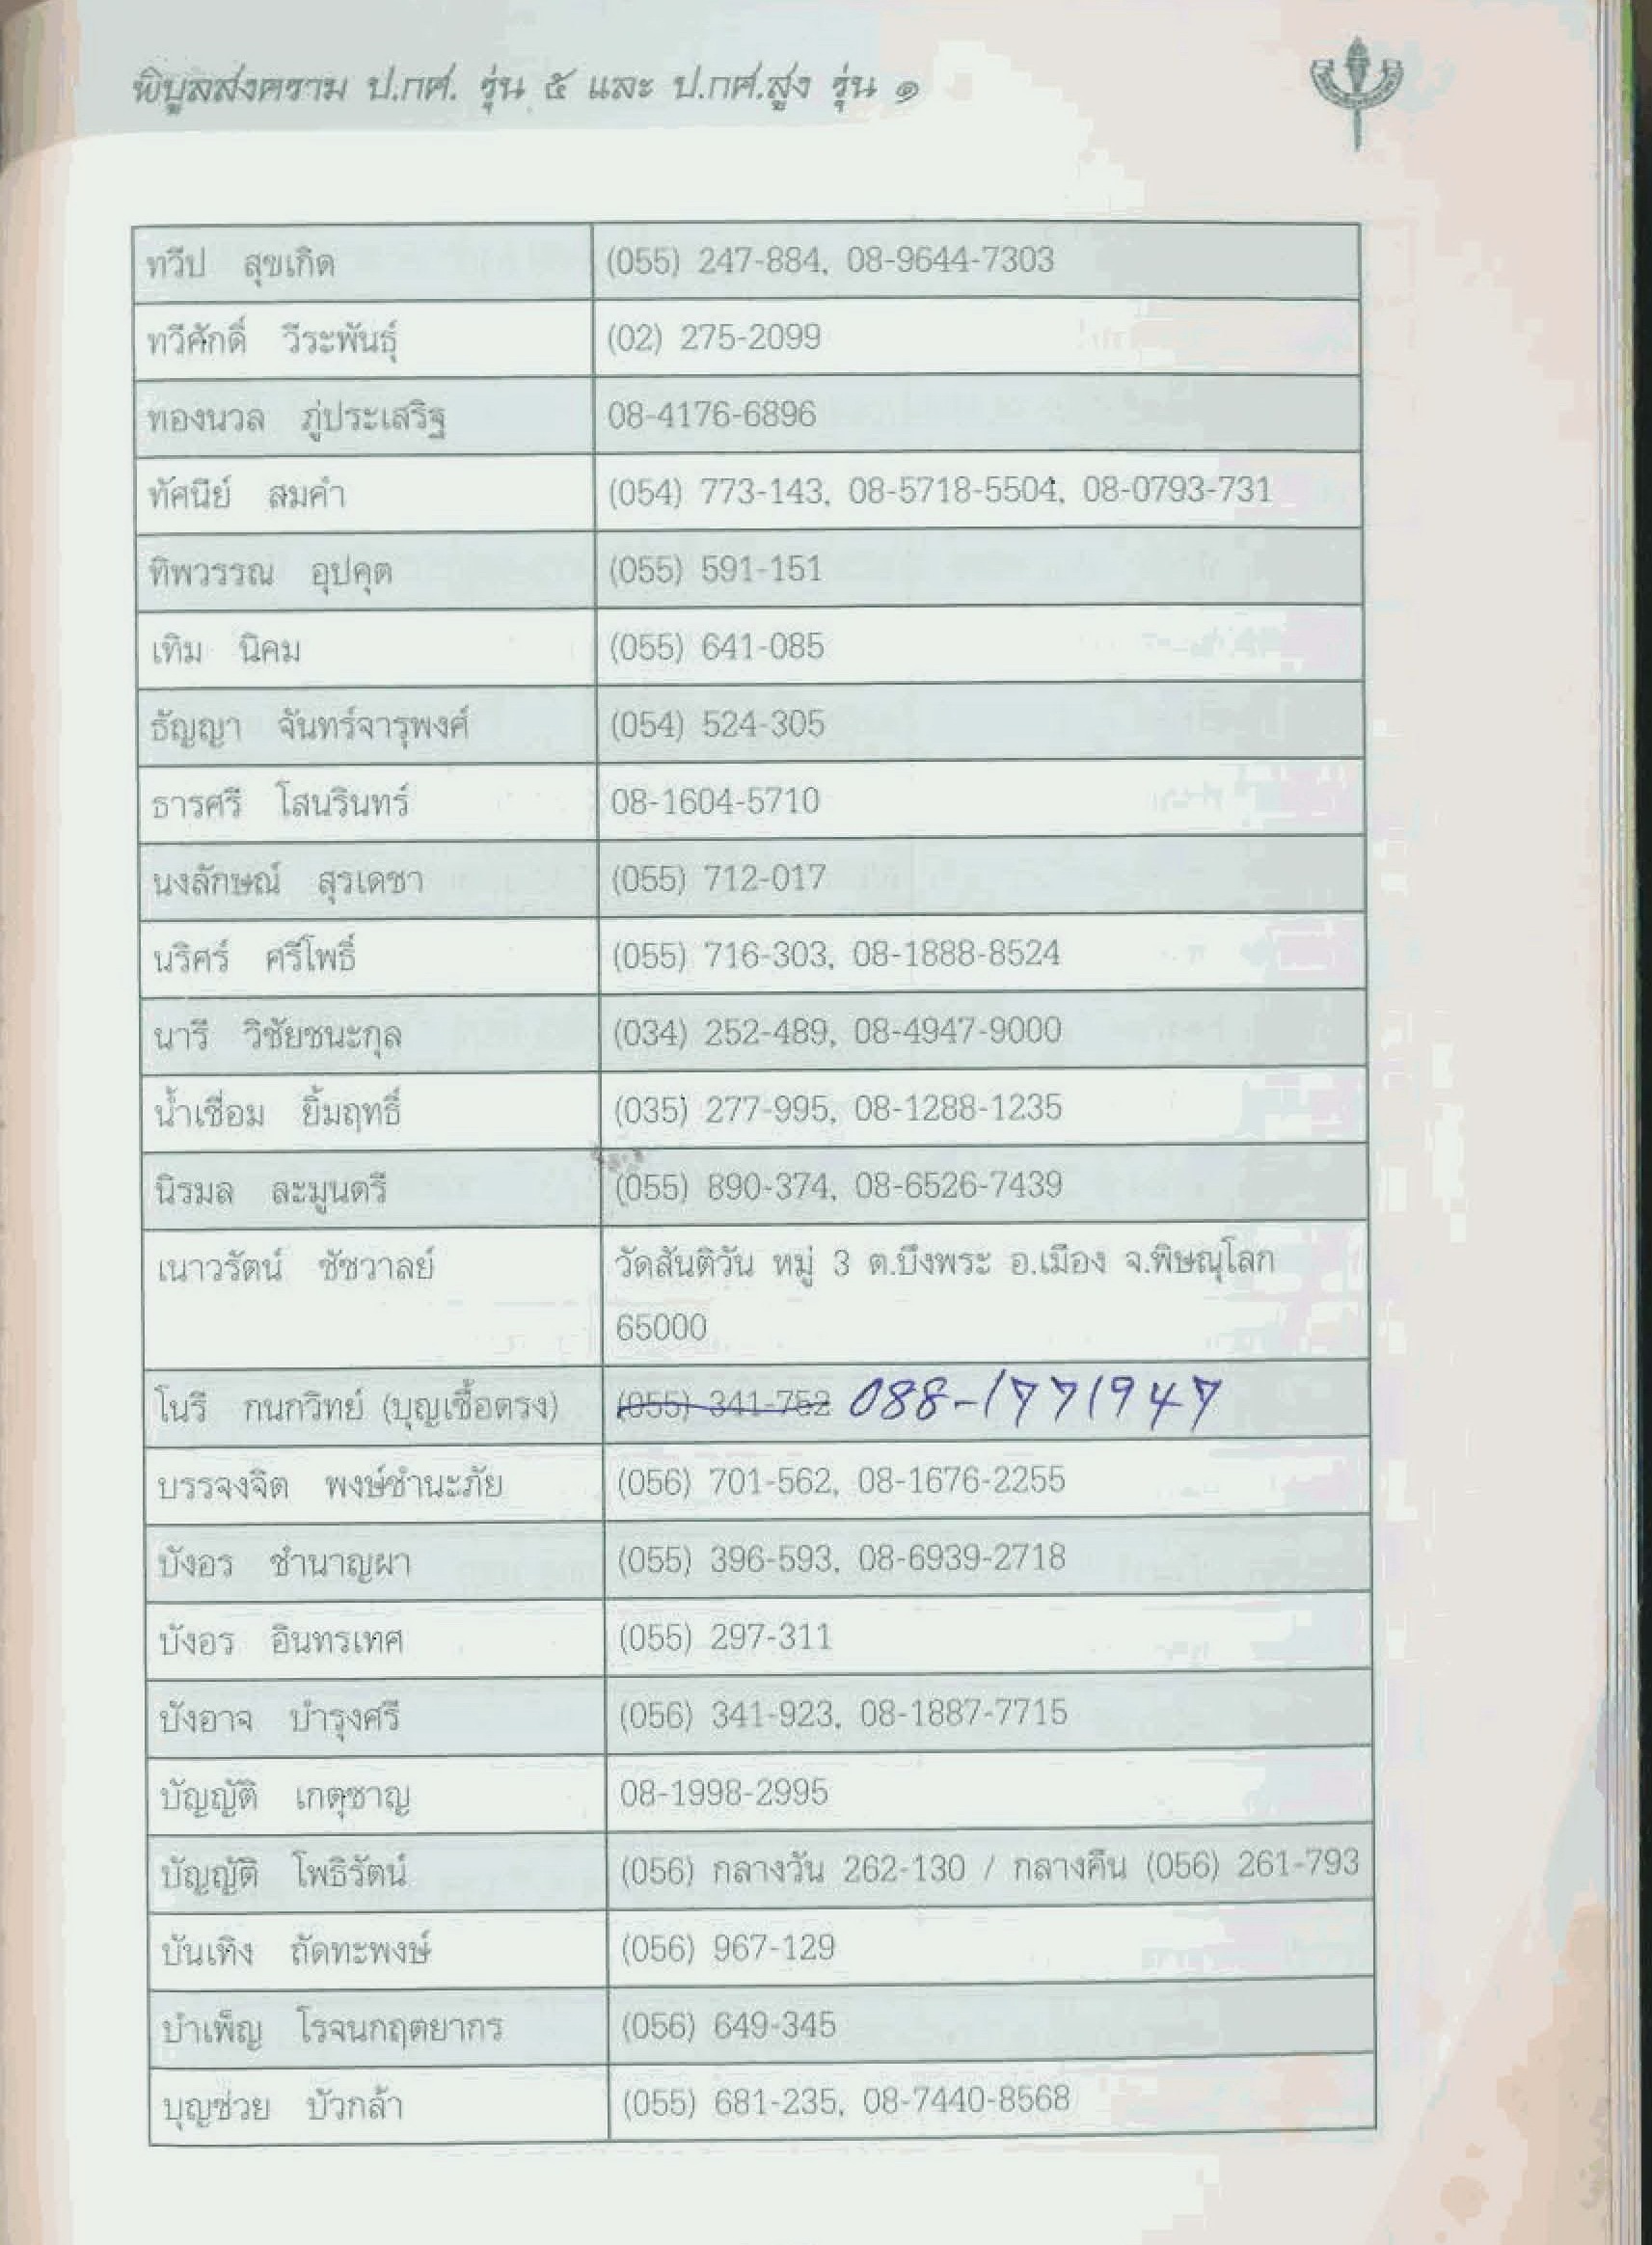 พิบูลสงคราม ป.กศ. รุ่น ๕ และ ป.กศ.สูง รุ่น ๑
ทวีป สุขเกิด (055) 247-884, 08-9644-7303
ทวีศักดิ์ วีระพันธุ์ (02) 275-2099
ทองนวล ภู่ประเสริฐ 08-4176-6896
ทัศนีย์ สมคำ (054) 773-143, 08-5718-5504, 08-0793-731
ทิพวรรณ อุปคุต (055) 591-151
เทิม นิคม (055) 641-085
ธัญญา จันทร์จารุพงศ์ (054) 524-305
ธารศรี โสนรินทร์ 08-1604-5710
นงลักษณ์ สุรเดชา (055) 712-017
นริศร์ ศรีโพธิ์ (055) 716-303, 08-1888-8524
นารี วิชัยชนะกุล (034) 252-489, 08-4947-9000
น้ำเชื่อม ยิ้มฤทธิ์ (035) 277-995, 08-1288-1235
นิรมล ละมูนตรี (055) 890-374, 08-6526-7439
เนาวรัตน์ ชัชวาลย์ วัดสันติวัน หมู่ 3 ต.บึงพระ อ.เมือง จ.พิษณุโลก
65000
โนรี กนกวิทย์ (บุญเชื้อตรง) (055) 341-752 088-1771947
บรรจงจิต พงษ์ชำนะภัย (056) 701-562, 08-1676-2255
บังอร ชำนาญผา (055) 396-593, 08-6939-2718
บังอร อินทรเทศ (055) 297-311
บังอาจ บำรุงศรี (056) 341-923, 08-1887-7715
บัญญัติ เกตุชาญ 08-1998-2995
บัญญัติ โพธิรัตน์ (056) กลางวัน 262-130 / กลางคืน (056) 261-793
บันเทิง ถัดทะพงษ์ (056) 967-129
บำเพ็ญ โรจนกฤตยากร (056) 649-345
บุญช่วย บัวกล้า (055) 681-235, 08-7440-8568